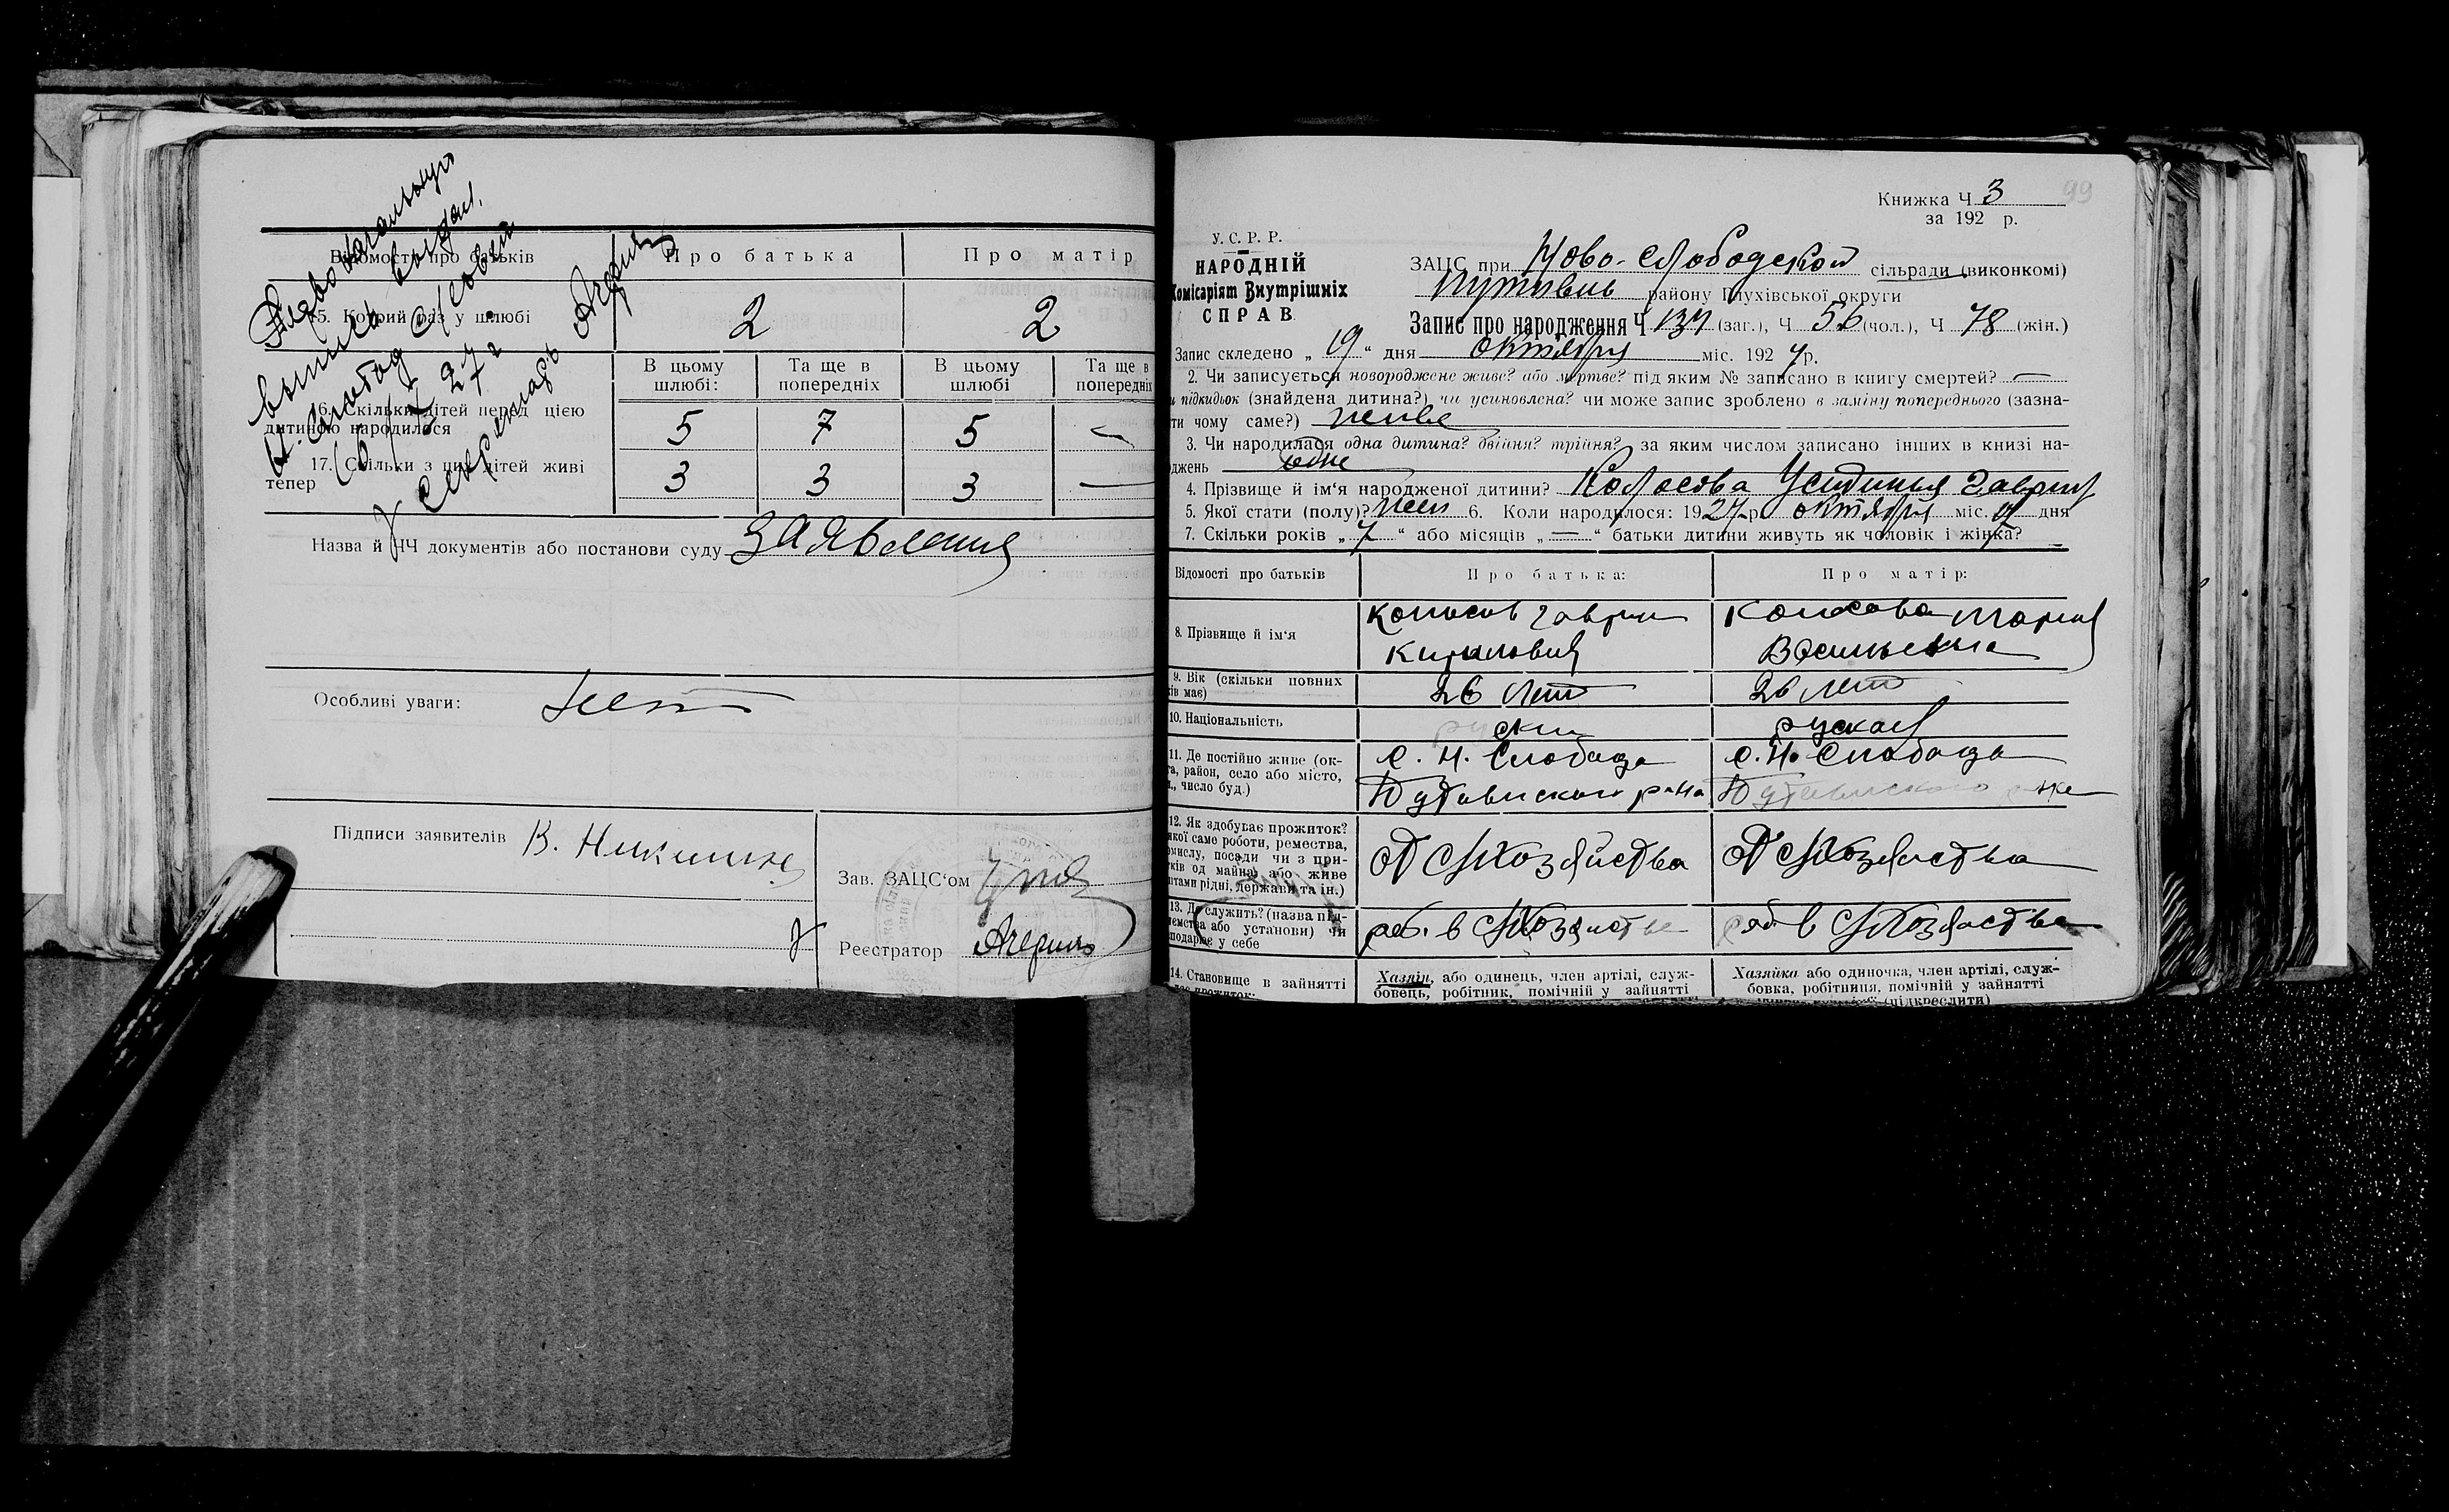 Первоначальную
выпись выдал.
Н. Слобод с/совет
19/X 27 г
Секретарь Агеринъ
Відомости про батьків
Про батька
Про матір
15. Котрий раз у шлюбі
2
2
В цьому шлюбі:
Та ще в попередніх
В цьому шлюбі
Та ще в попередніх
16. Скільки дітей перед цією
дитиною народилося
5
7
5
—
17. Скільки з цих дітей живі
тепер
3
3
3
—
Назва й ЧЧ документів або постанови суду заявления
Особливі уваги: нет
Підписи заявителів В. Никишин
Зав. ЗАЦС'ом
Реєстратор
Книжка Ч 3
99
за 192 р.
У. С. Р. Р.
НАРОДНІЙ
Комісаріят Внутрішніх
СПРАВ
ЗАЦС при Ново-Слободской сільради (виконкомі)
Путивль району Глухівської округи
Запис про народження Ч 134 (заг.), Ч 56 (чол.), Ч 78 (жін.)
Запис складено „19“ дня октября міс. 1927 р.
2. Чи записується новороджене живе? або мертве? під яким № записано в книгу смертей? —
и підкидьок (знайдена дитина?) чи усиновлена? чи може запис зроблено в заміну попереднього (зазна-
ти чому саме?) живе
3. Чи народилася одна дитина? двійня? трійня? за яким числом записано інших в книзі на-
джень одне
4. Прізвище й ім'я народженої дитини? Колосова Устиния Гаврил
5. Якої стати (полу)? жен 6. Коли народилося: 1927 р. октября міс. дня
7. Скільки років „7“ або місяців „—“ батьки дитини живуть як чоловік і жінка?
Відомості про батьків
Про батька:
Про матір:
8. Прізвище й ім'я
Колосов Гаврил
Кирилович
Колосова Мария
Васильевна
9. Вік (скільки повних
ків має)
26 лет
26 лет
10. Національність
руски
руская
11. Де постійно живе (ок-
га, район, село або місто,
л., число буд.)
с. Н. Слобода
Путивльского р-на
с. Н. Слобода
Путивльского р-на
12. Як здобуває прожиток?
якої саме роботи, ремества,
омислу, посади чи з при-
тків од майна) або живе
штами рідні, держави та ін.)
от с/хозяйства
от с/хозяства
13. Де служить? (назва під-
ємства або установи) чи
сподарює у себе
раб. в с/хозяистве
раб. в с/хозястве
14. Становище в зайнятті
Хазяїн, або одинець, член артілі, служ-
бовець, робітник, помічній у зайнятті
Хазяйка або одиночка, член артілі, служ-
бовка, робітниця, помічній у зайнятті